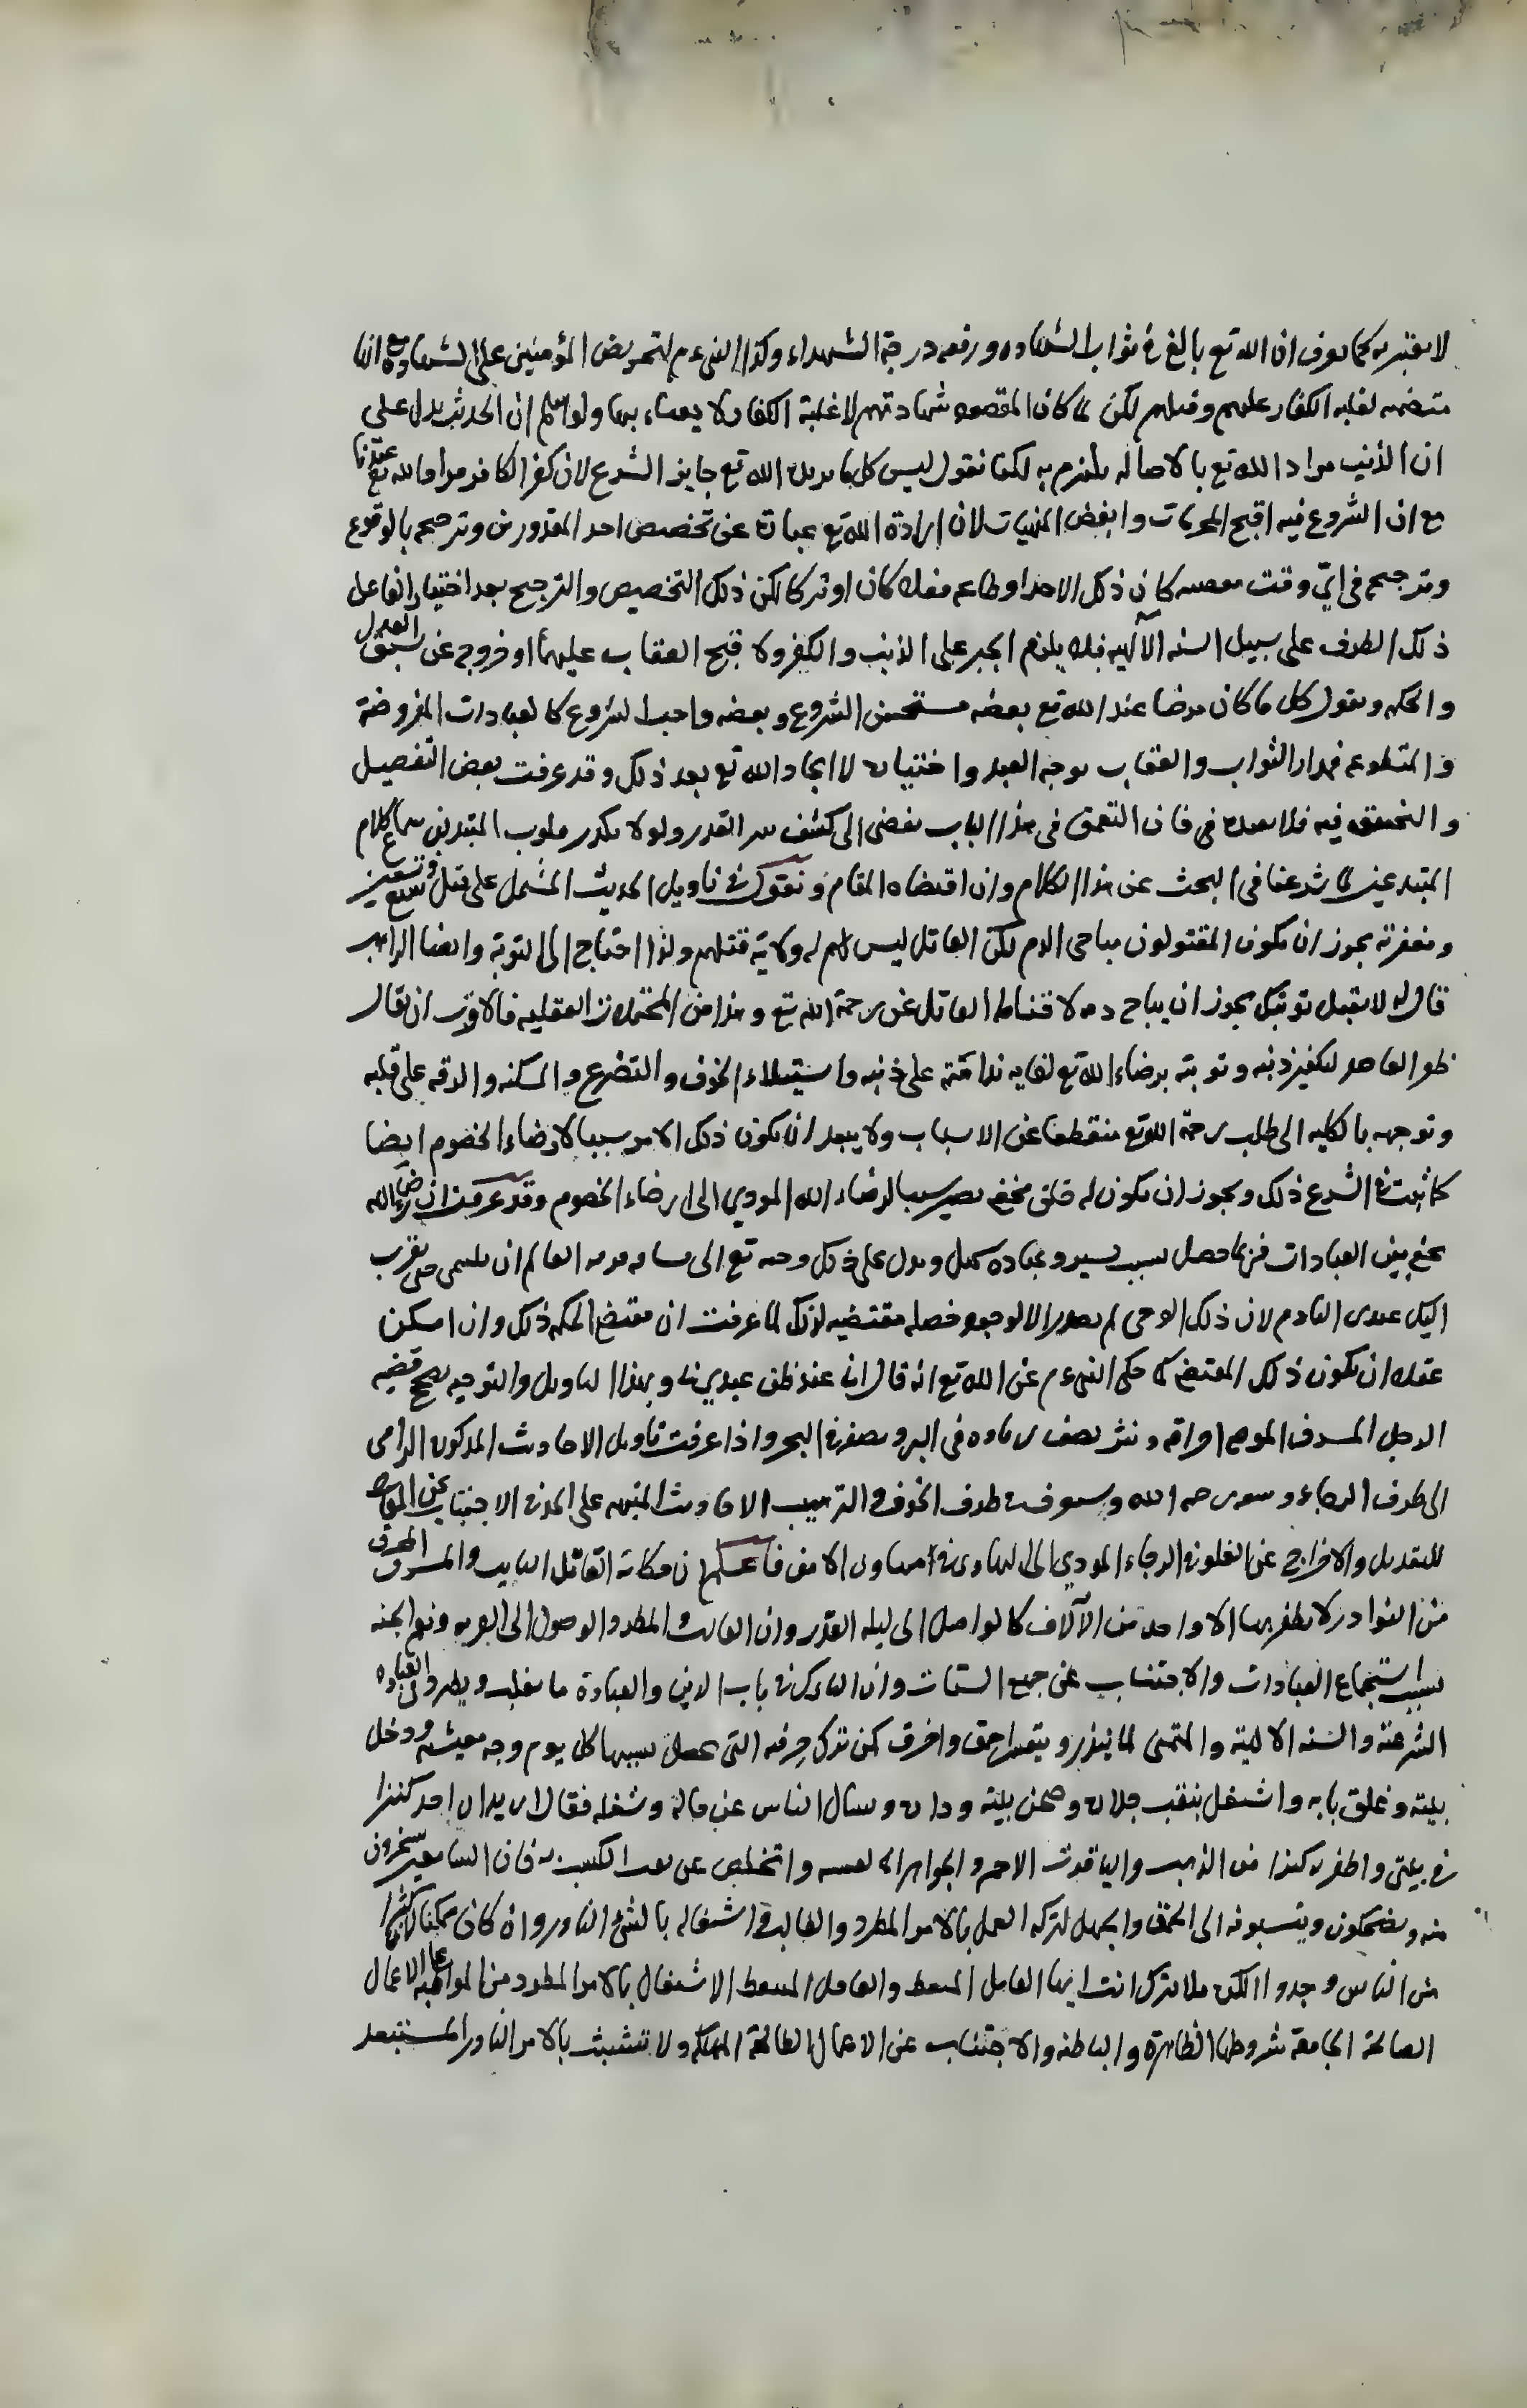 لا يعتبر به كما يعرف ان الله تع بالغ في ثواب الشهاده ورفعه درجة الشهداء وكذا النبي ءم لتحريض المؤمنين على الشهاده مع انها
متضمنه لغلبه الكفار عليهم وقتلهم لكن لما كان المقصود شهادتهم لا غلبة الكفار لا يعباء بها ولو سلم ان الحديث يدل على
ان الذنب مراد الله تع بالاصاله يلتزم به لكنا نقول ليس كل ما يريده الله تع جايز الشرع لان كفر الكافر مراد الله تع عندنا
مع ان الشروع فيه اقبح المحرمات وابغض المنهيات لان ارادة الله تع عبارة عن تخصيص احد المقدورين وترجيحه بالوقوع
وترجيحه في ايّ وقت معصيه كان ذلك الاحد او طاعه فعلا كان او تركا لكن ذلك التخصيص والترجيح بعد اختيار الفاعل
ذلك الطرف على سبيل السنه الآلهيه فلا يلزم الجبر على الذنب والكفر ولا قبح العقاب عليهما او خروج عن سبق العدل
والحكمه ونقول كل ما كان مرضيا عند الله تع بعضه مستحسن الشروع وبعضه واجب الشروع كالعبادات المفروضة
والمتطوعه فمدار الثواب والعقاب توجه العبد واختياره لا ايجاد الله تع بعد ذلك وقد عرفت بعض التفصيل
والتحقيق فيه فلا نعيده فان التعمق في هذا الباب يفضي الى كشف سر القدر ولولا تكدر قلوب المبتدئين سماع كلام
المبتدعين لما شرعنا في البحث عن هذا الكلام وان اقتضاه المقام ونقول في تاويل الحديث المشمل على قتل تسع وتسعين
ومغفرته يجوز ان يكون المقتولون مباحي الدم لكن القاتل ليس لهم له ولاية قتلهم ولذا احتاج الى التوبة وايضا الراهب
قال له لا يقبل توبتك يجوز ان يباح دمه لاقناطه القاتل عن رحمة الله تع وهذا من المحتملات العقليه فالاقرب ان يقال
القاصد لتكفير ذنبه وتوبته برضاء الله تع لغايه ندامته على ذنبه واستيلاء الخوف والتضرع والمسكنه والرقه على قلبه
وتوجهه بالكليه الى طلب رحمة الله تع منقطعا عن الاسباب ولا يبعد ان يكون ذلك الامر سببا لارضاء الخصوم ايضا
كما ثبت في الشرع ذلك ويجوز ان يكون له خلق مخفي يصير سببا لرضاء الله المودي الى ارضاء الخصوم وقد عرفت ان رضاء الله
مخفي بين العبادات فربما حصل بسبب يسير وعباده ويدل على ذلك وحيه تع الى العالم ان حتى يقرب
اليك عبدي النادم لان ذلك الوحي لم يصدر الا لوجود خصله مقتضيه لذلك لما عرفت ان مقتضى الحكمه ذلك وان امكن
عقلا ان يكون ذلك المقتضي كما حكى النبي ءم عن الله تع انه قال انا عند ظن عبدي بي وبهذا التاويل والتوجيه يصح قضيه
الرجل المسرف الموصي احراقه ونثر نصف رماده في البر ونصفه في البحر واذا عرفت تاويل الاحاديث المذكوره الرامي
الى طرف الرجاء وسعه رحمة الله وستعرف طرف الخوف والترهيب الاحاديث المنبهه على الاجتناب عن
للتعديل والاخراج عن الغلو في الرجاء المودي الى التهاون في فاعلم ان حكاية القاتل التايب والمسرف المحرق
من النوادر لا يظفر بها الا واحد من الآلاف كالواصل الى ليله القدر وان الغالب والمطرد الوصول الى ونعم الجنه
بسبب استجماع العبادات والاجتناب عن جميع السيئات وان التارك في باب الدين والعبادة ما يغلب ويطرد في العباده
الشرعيه والسنه الالهية والمتمني لما ينذر احمق واخرق كمن ترك حرفه التي يحصل بسببها كل يوم وجه معيشته ودخل
بيته وغلق بابه واشتغل بنقب جداره وصحن بيته وداره وسال الناس عن حاله وشغله فقال اريد ان اجد كنزا
في بيتي واظفر كنزا من الذهب والياقوت الاحمر والجواهر النفيسه واتخلص عن تعب الكسب فان السامعين يسخرون
منه ويضحكون وينسبونه الى الحمق والجهل لتركه العمل بالامر المطرد والغالب واشتغاله بالشئ النادر وان كان ممكنا لان كثيرا
من الناس وجدوا الكنز فلا تترك انت ايها العاقل المتيقظ الاشتغال بالامر المطرد من المواظبه على الاعمال
الصالحة الجامعة شروطها الظاهرة والباطنه والاجتناب عن الاعمال الطالحة المهلكه ولا تتشبث بالامر النادر المستبعد